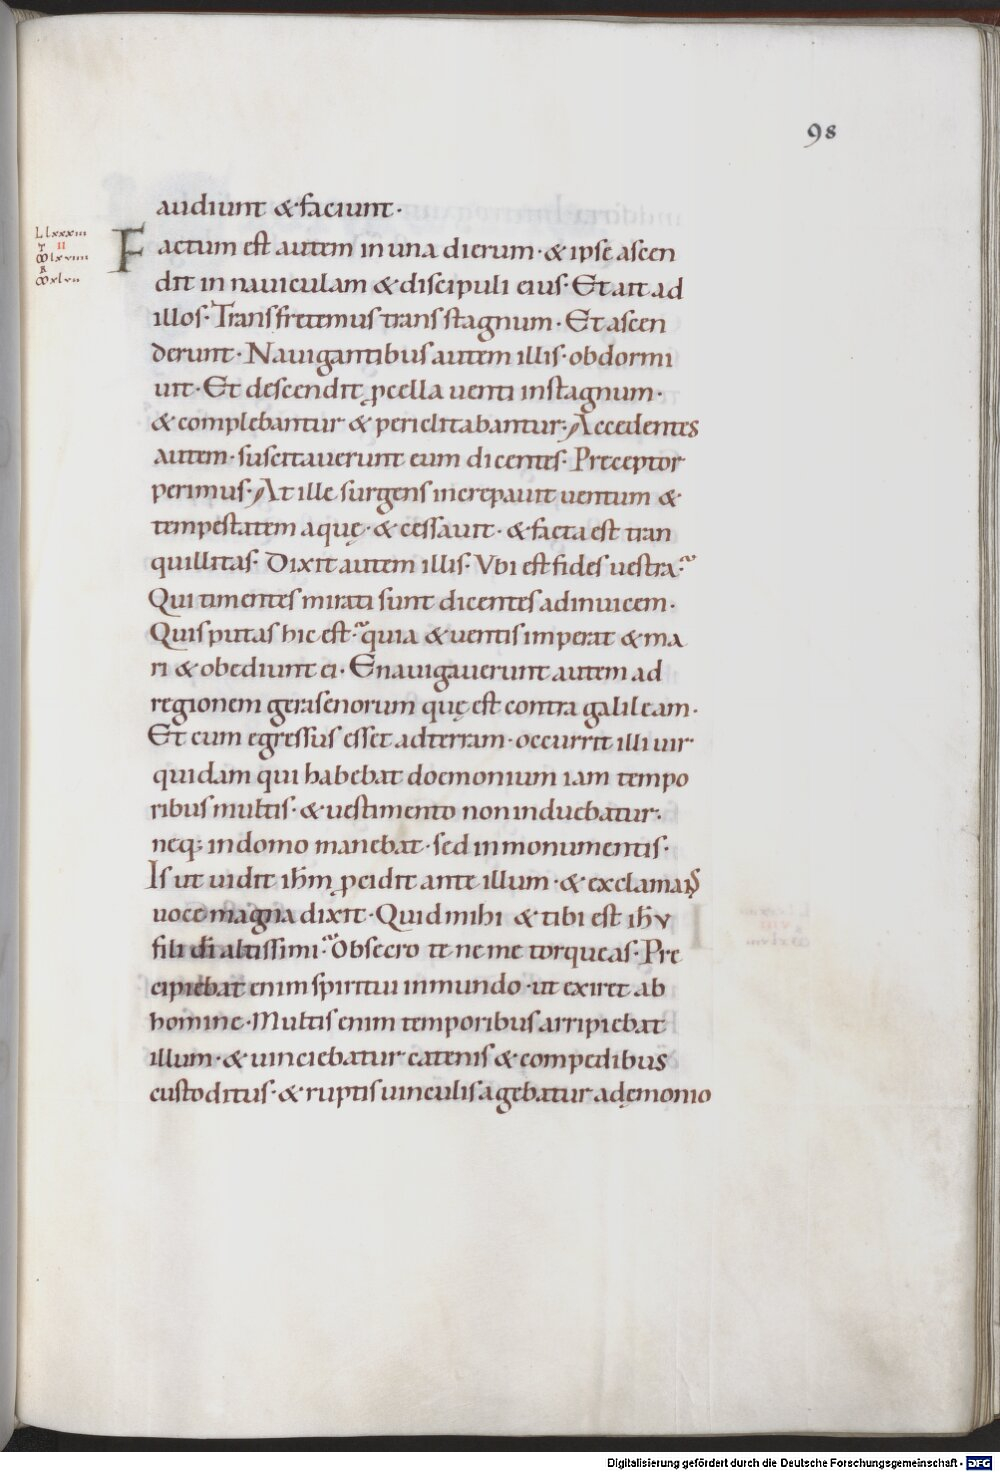 98
audiunt & faciunt·
L lxxxiii
II
Factum est autem in una dierum· & ipse ascen
dit in nauiculam & discipuli eius· Et ait ad
illos· Transfretemus trans stagnum· Et ascen
derunt· Nauigantibus autem illis· obdormi
uit· Et descendit ꝓcella uenti in stagnum·
& complebantur & periclitabantur; Accedentes
autem· suscitauerunt eum dicentes· Preceptor
perimus· At ille surgens increpauit uentum &
tempestatem aquę· & cessauit· & facta est tran
quillitas· Dixit autem illis· Vbi est fides uestra?
Qui timentes mirati sunt dicentes adinuicem·
Quis putas hic est? quia & uentis imperat & ma
ri & obediunt ei· Enauigauerunt autem ad
regionem gerasenorum quę est contra galileam·
Et cum egressus esset ad terram· occurrit illi uir
quidam qui habebat doemonium iam tempo
ribus multis· & uestimento non induebatur·
neq; in domo manebat· sed in monumentis·
Is ut uidit ihm̄ ꝓcidit ante illum· & exclamans
uoce magna dixit· Quid mihi & tibi est ih̄u
fili dī altissimi? Obsecro te ne me torqueas· Pre
cipiebat enim spiritui inmundo· ut exiret ab
homine· Multis enim temporibus arripiebat
illum· & uinciebatur catenis & compedibus
custoditus· & ruptis uinculis agebatur a dęmonio
Digitalisierung gefördert durch die Deutsche Forschungsgemeinschaft - DFG